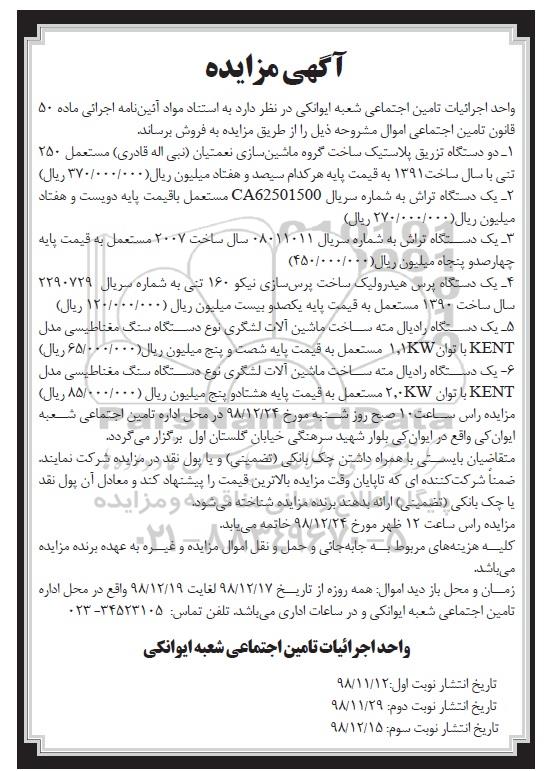 آگهی مزایده
واحد اجرائیات تامین اجتماعی شعبه ایوانکی در نظر دارد به استناد مواد آئین‌نامه اجرائی ماده ۵۰
قانون تامین اجتماعی اموال مشروحه ذیل را از طریق مزایده به فروش برساند.
۱ـ دو دستگاه تزریق پلاستیک ساخت گروه ماشین‌سازی نعمتیان (نبی اله قادری) مستعمل ۲۵۰
تنی با سال ساخت ۱۳۹۱ به قیمت پایه هرکدام سیصد و هفتاد میلیون ریال(۳۷۰/۰۰۰/۰۰۰ ریال)
۲ـ یک دستگاه تراش به شماره سریال CA62501500 مستعمل باقیمت پایه دویست و هفتاد
میلیون ریال(۲۷۰/۰۰۰/۰۰۰ ریال)
۳ـ یک دستگاه تراش به شماره سریال ۰۸۰۱۱۰۱۱ سال ساخت ۲۰۰۷ مستعمل به قیمت پایه
چهارصدو پنجاه میلیون ریال(۴۵۰/۰۰۰/۰۰۰)
۴ـ یک دستگاه پرس هیدرولیک ساخت پرس‌سازی نیکو ۱۶۰ تنی به شماره سریال ۲۲۹۰۷۲۹
سال ساخت ۱۳۹۰ مستعمل به قیمت پایه یکصدو بیست میلیون ریال (۱۲۰/۰۰۰/۰۰۰ ریال)
۵ـ یک دستگاه رادیال مته ساخت ماشین آلات لشگری نوع دستگاه سنگ مغناطیسی مدل
KENT با توان ۱,۱KW مستعمل به قیمت پایه شصت و پنج میلیون ریال(۶۵/۰۰۰/۰۰۰ ریال)
۶- یک دستگاه رادیال مته ساخت ماشین آلات لشگری نوع دستگاه سنگ مغناطیسی مدل
KENT با توان ۲,۰KW مستعمل به قیمت پایه هشتادو پنج میلیون ریال (۸۵/۰۰۰/۰۰۰ ریال)
مزایده راس ساعت۱۰ صبح روز شنبه مورخ ۹۸/۱۲/۲۴ در محل اداره تامین اجتماعی شعبه
ایوان‌کی واقع در ایوان‌کی بلوار شهید سرهنگی خیابان گلستان اول برگزار می‌گردد.
متقاضیان بایستی با همراه داشتن چک بانکی (تضمینی) و یا پول نقد در مزایده شرکت نمایند.
ضمناً شرکت‌کننده ای که تاپایان وقت مزایده بالاترین قیمت را پیشنهاد کند و معادل آن پول نقد
یا چک بانکی (تضمینی) ارائه بدهند برنده مزایده شناخته می‌شود.
مزایده راس ساعت ۱۲ ظهر مورخ ۹۸/۱۲/۲۴ خاتمه می‌یابد.
کلیه هزینه‌های مربوط به جابه‌جائی و حمل و نقل اموال مزایده و غیره به عهده برنده مزایده
می‌باشد.
زمان و محل باز دید اموال: همه روزه از تاریخ ۹۸/۱۲/۱۷ لغایت ۹۸/۱۲/۱۹ واقع در محل اداره
تامین اجتماعی شعبه ایوانکی و در ساعات اداری می‌باشد. تلفن تماس: ۳۴۵۲۳۱۰۵- ۰۲۳
واحد اجرائیات تامین اجتماعی شعبه ایوانکی
تاریخ انتشار نوبت اول:۹۸/۱۱/۱۲
تاریخ انتشار نوبت دوم: ۹۸/۱۱/۲۹
تاریخ انتشار نوبت سوم: ۹۸/۱۲/۱۵